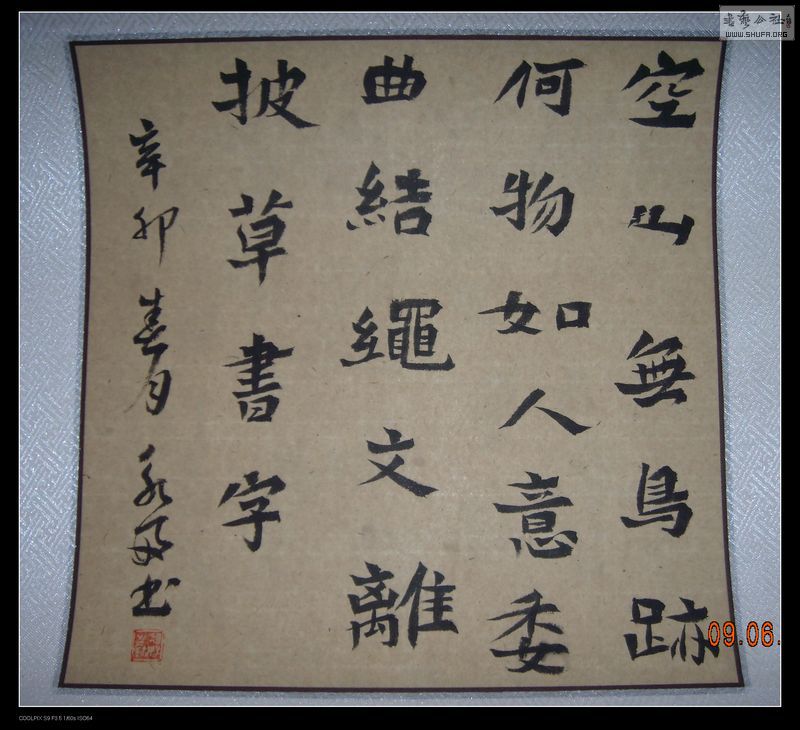 空山無鳥跡
何物如人意委
曲結繩文離
披草書字
辛卯春月
書
書藝公社
WWW.SHUFA.ORG
09.06.
COOLPIX S9 F3.5 1/60s ISO64